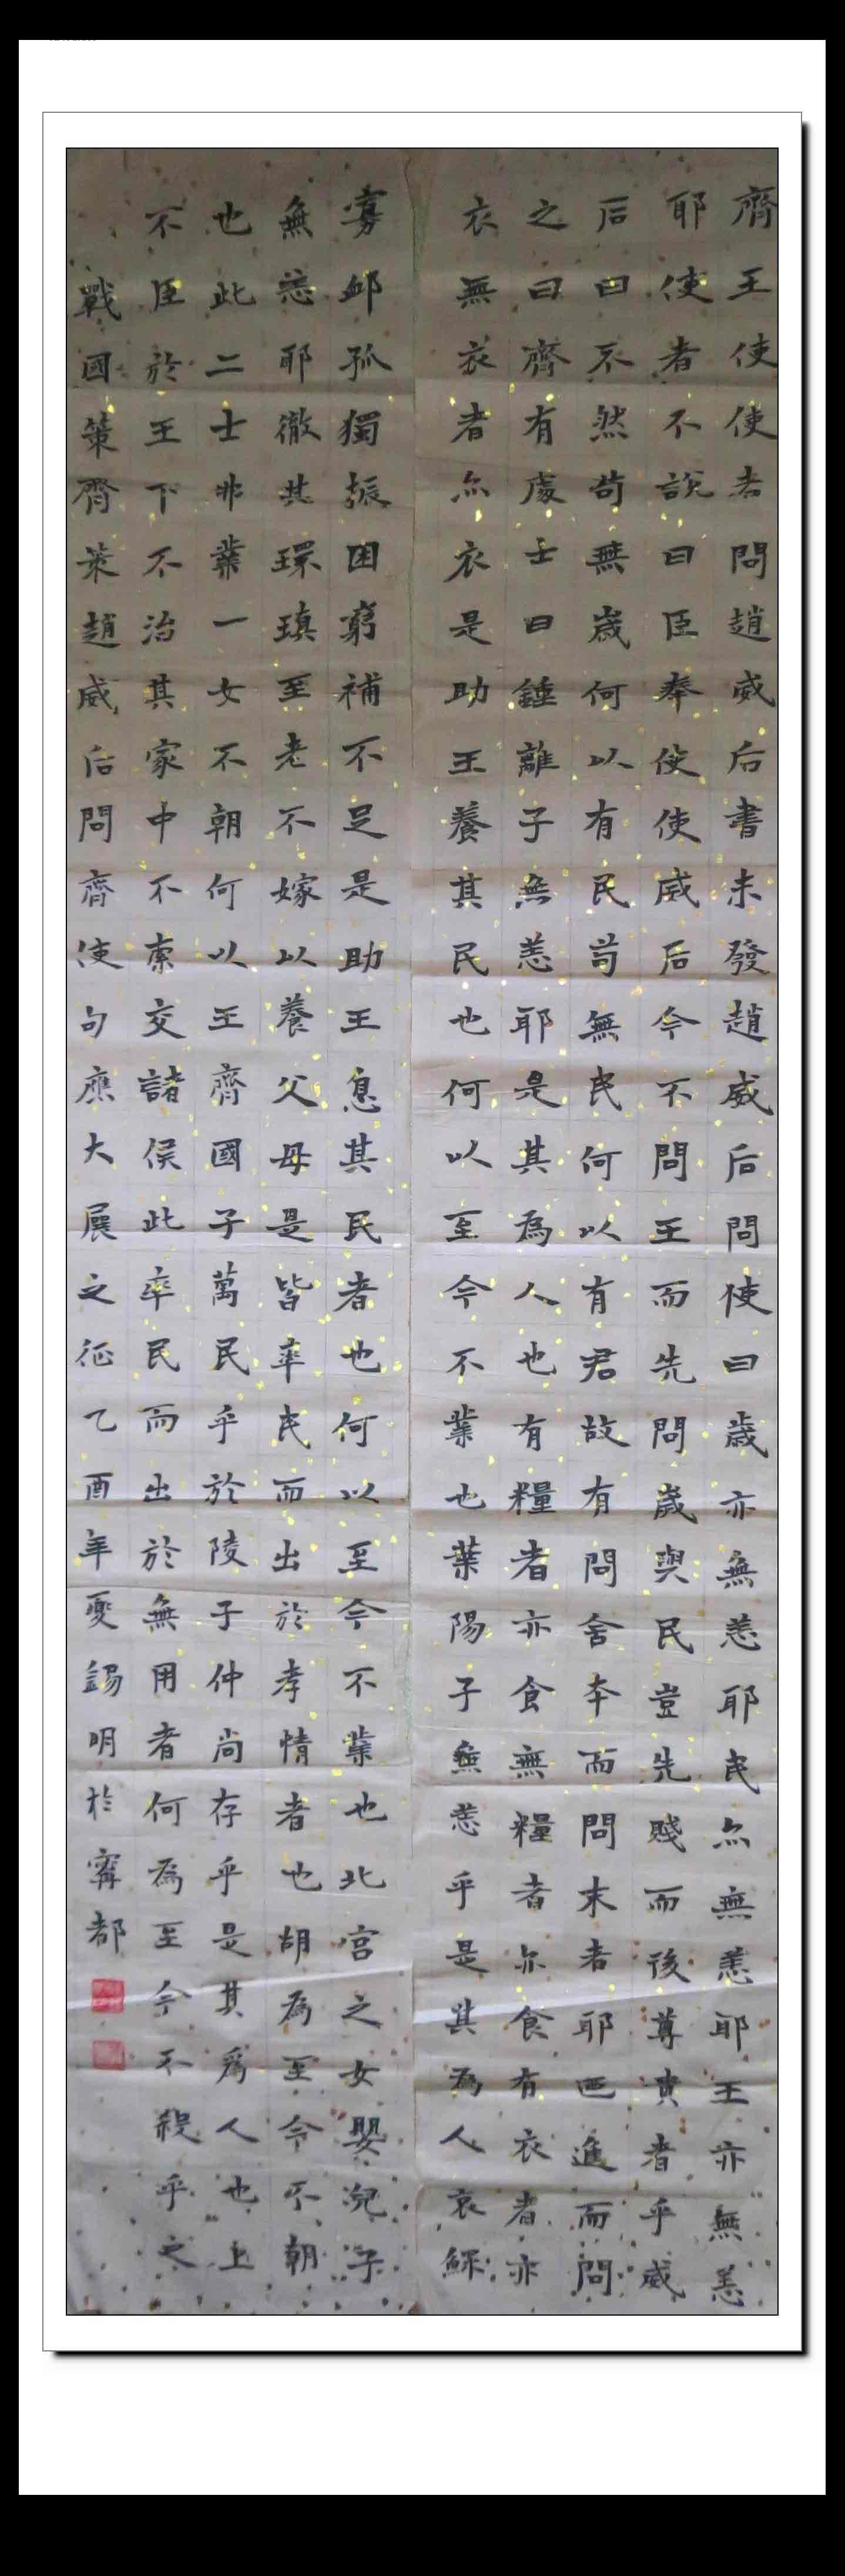 齊王使使者問趙威后書未發趙威后問使曰歲亦無恙耶民亦無恙耶王亦無恙
耶使者不說曰臣奉使使威后今不問王而先問歲與民豈先賤而後尊貴者乎威
后曰不然苟無歲何以有民苟無民何以有君故有問舍本而問末者耶迺進而問
之曰齊有處士曰鍾離子無恙耶是其為人也有糧者亦食無糧者亦食有衣者亦
衣無衣者亦衣是助王養其民也何以至今不業也葉陽子無恙乎是其為人哀鰥
寡卹孤獨振困窮補不足是助王息其民者也何以至今不業也北宮之女嬰兒子
無恙耶徹其環瑱至老不嫁以養父母是皆率民而出於孝情者也胡為至今不朝
也此二士弗業一女不朝何以王齊國子萬民乎於陵子仲尚存乎是其為人也上
不臣於王下不治其家中不索交諸侯此率民而出於無用者何為至今不殺乎之
戰國策齊策趙威后問齊使句應大展之征乙酉年夏錫明於寧都